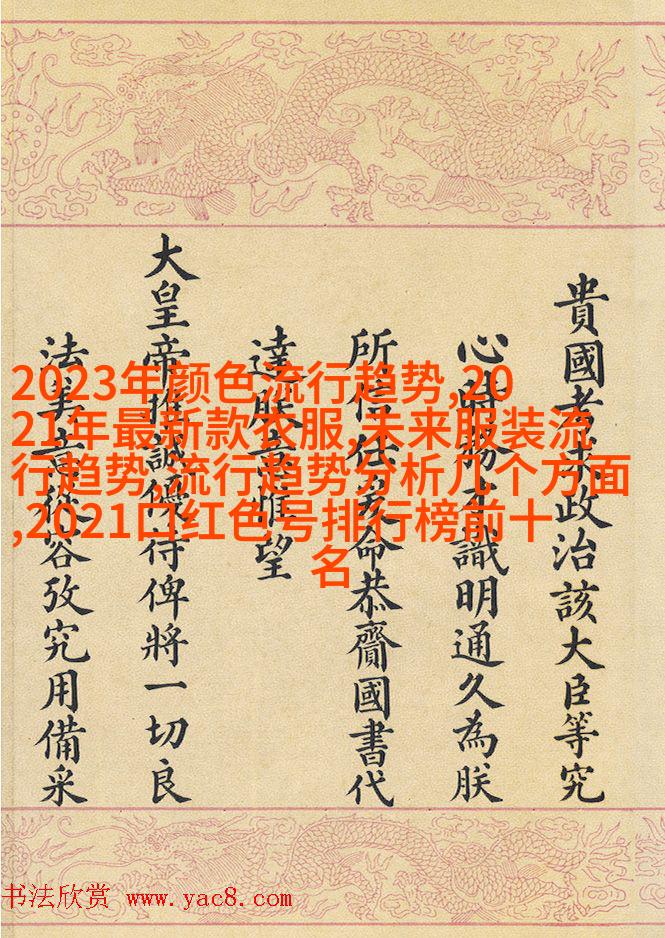 2023年颜色流行趋势,20
21年最新款衣服,未来服装流
行趋势,流行趋势分析几个方面
,2021口红色号排行榜前十
名
貴國考求政治該大臣等究
心時務才識明通久為朕
所信任爰命恭齎國書代
達朕意惟望
大皇帝推誠優待俾將一切良
法美意從容攷究用備采
书法欣赏 www.yac8.com